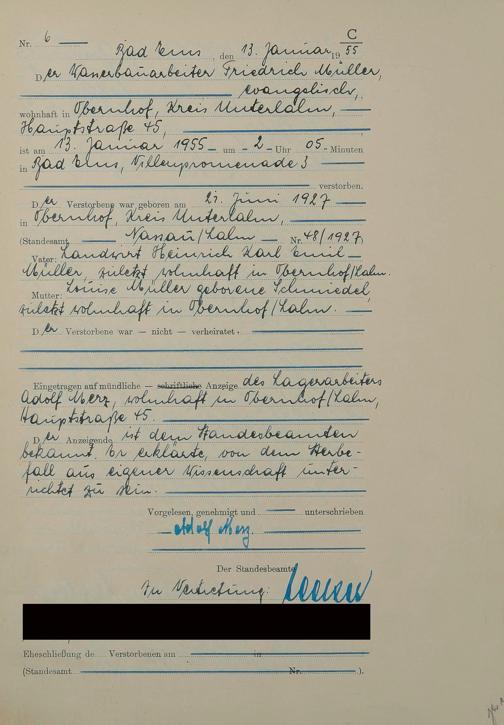 Nr. 6 C
Bad Ems, den 13. Januar 1955
Der Wasserbauarbeiter Friedrich Müller,
evangelisch,
wohnhaft in Obernhof, Kreis Unterlahn,
Hauptstraße 45,
ist am 13. Januar 1955 um 2 Uhr 05 Minuten
in Bad Ems, Villenpromenade 3
verstorben.
Der Verstorbene war geboren am 21. Juni 1927
in Obernhof, Kreis Unterlahn,
(Standesamt Nassau/Lahn Nr. 48/1927)
Vater: Landwirt Heinrich Karl Emil
Müller, zuletzt wohnhaft in Obernhof/Lahn.
Mutter: Louise Müller geborene Schmiedel,
zuletzt wohnhaft in Obernhof/Lahn.
Der Verstorbene war — nicht — verheiratet.
Eingetragen auf mündliche — schriftliche Anzeige des Lagerarbeiters
Adolf Merz, wohnhaft in Obernhof/Lahn,
Hauptstraße 45.
Der Anzeigende ist dem Standesbeamten
bekannt. Er erklärte, von dem Sterbe-
fall aus eigener Wissenschaft unter-
richtet zu sein.
Vorgelesen, genehmigt und unterschrieben
Adolf Merz.
Der Standesbeamte
In Vertretung:
Eheschließung de Verstorbenen am in
(Standesamt Nr. ).